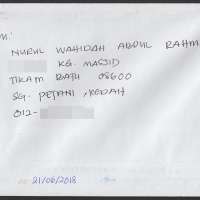 NURUL WAHIDAH ABDUL RAHM
KG. MASJID
TIKAM BATU 08600
SG. PETANI, KEDAH
012-
21/06/2018